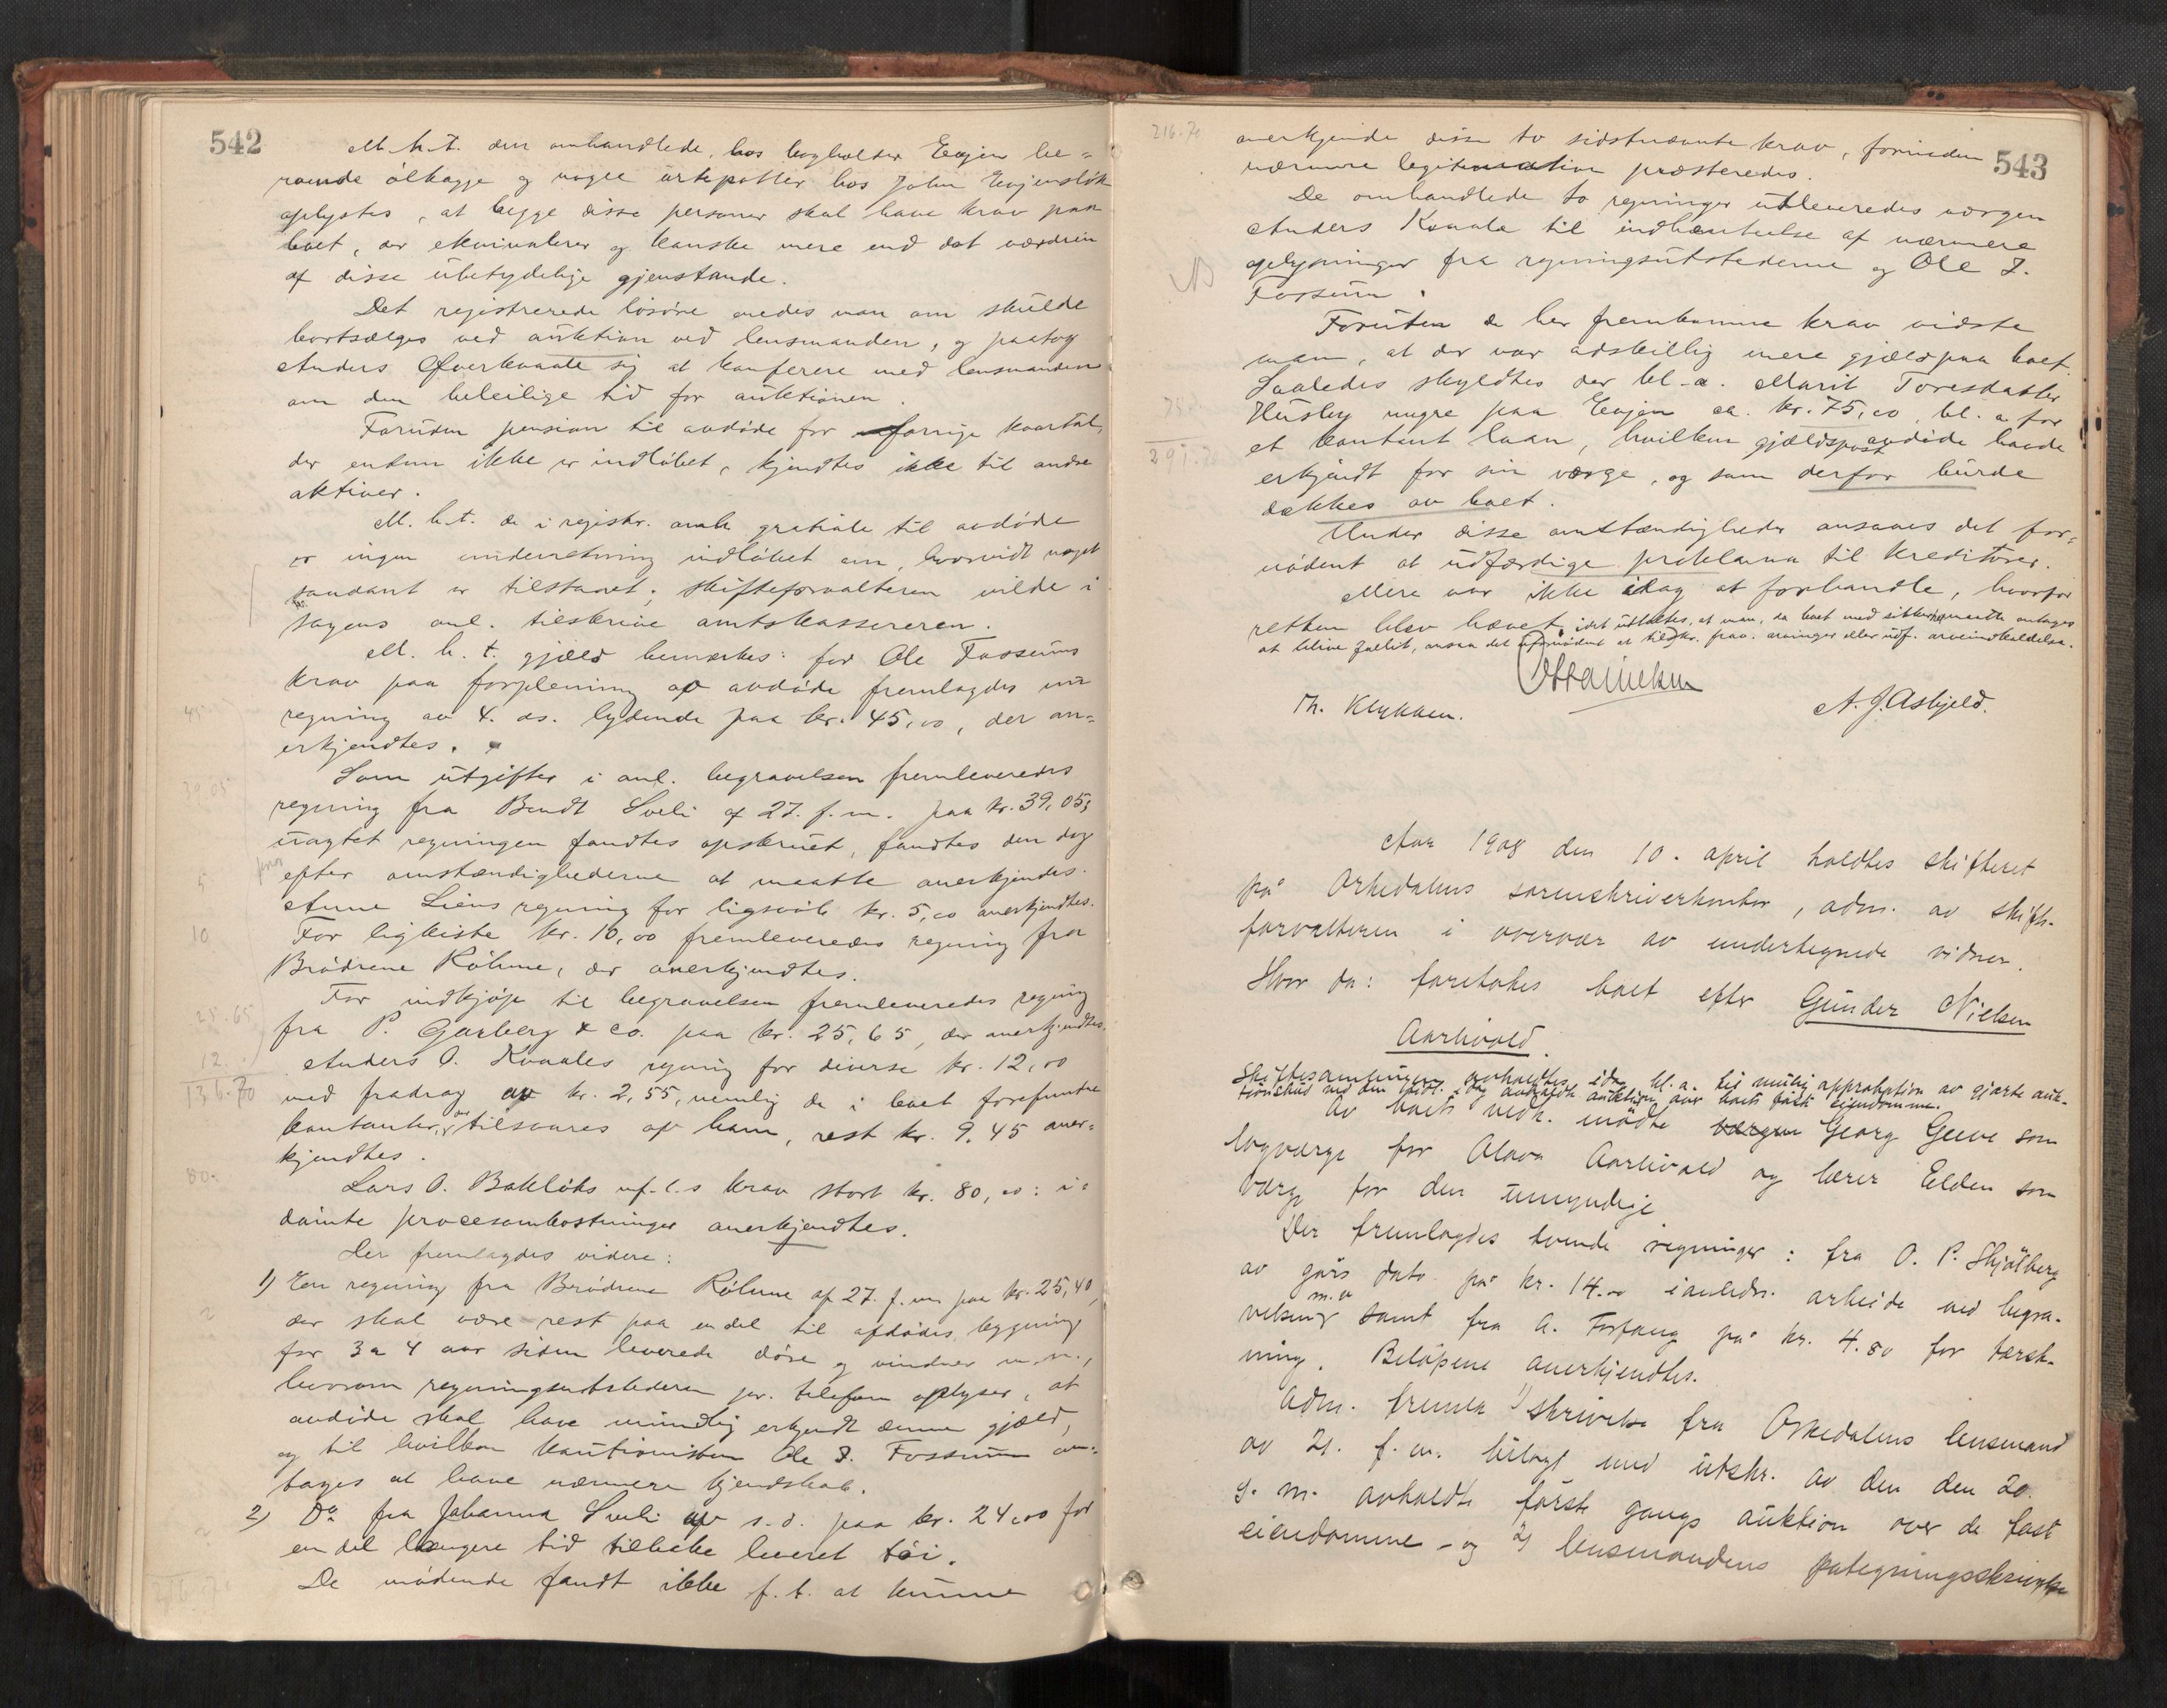 542
M.h.t. den omhandlede, hos bogholder Evjen be=
roende ölkagge og nogle urtepotter hos John Evjensløk
oplystes, at begge disse personer skal have krav paa
boet, der ekvivalerer og kanske mere end det værdien
af disse ubetydelige gjenstande.
Det registrerede løsøre enedes man om skulde
bortsælges ved auktion ved lensmanden, og paatog
Anders Øverkvaale sig at konferere med lensmanden
om den beleilige tid for auktionen.
Foruden pension til avdøde for forrige kvartal,
der endnu ikke er indløbet, kjendtes ikke til andre
aktiver.
M.h.t. de i registr. omh. gratiale til avdøde
er ingen underretning indløbet om, hvorvidt noget
saadant er tilstaaet; skifteforvalteren vilde i
sagens anl. tilskrive amtskassereren.
M.h.t. gjæld bemærkes: for Ole Fossums
krav paa forpleining av avdøde fremlagdes nu
regning av 4. ds. lydende paa kr. 45,00, der an=
erkjendtes.
Som utgifter i anl. begravelsen fremleveredes
regning fra Bendt Sveli af 27. f.m. paa kr. 39,05;
uagtet regningen fandtes opskruet, fandtes den dog
efter omstændighederne at maatte anerkjendes.
Anne Liens regning for ligsvøb kr. 5,00 anerkjendtes.
For ligkiste kr. 10,00 fremleveredes regning fra
Brødrene Røhme, der anerkjendtes.
For indkjøp til begravelsen fremleveredes regning
fra P. Garberg & Co. paa kr. 25,65, der anerkjendtes.
Anders O. Kvaales regning for diverse kr. 12,00
med fradrag av kr. 2,55, nemlig de i boet forefundne
kontanter, der tilsvares af ham, rest kr. 9,45 aner=
kjendtes.
Lars O. Bakløks krav stort kr. 80,00: i=
dømte procesomkostninger anerkjendtes.
Der fremlagdes videre:
1) En regning fra Brødrene Røhme af 27. f.m. paa kr. 25,40,
der skal være rest paa en del til afdødes bygning
for 3 a 4 aar siden leverede døre og vinduer m.m.,
hvorom regningsutstederen pr. telefon oplyser, at
avdøde skal have mundtlig erkjendt denne gjæld,
og til hvilken kautionisten Ole I. Fossum an=
tages at have nærmere kjendskab.
2) Do fra Johanna Sveli af s.d. paa kr. 24,00 for
en del længere tid tilbake leveret tøi.
De mødende fandt ikke f.t. at kunne
45
39 05
5
10
25.65
12.
136.70
80.
543
216.70
anerkjende disse to sidstnævnte krav, forinden
nærmere legitimation præsteredes.
De omhandlede to regninger utleveredesværgen
Anders Kvaale til indhentelse af nærmere
oplysninger fra regningsutstederne og Ole I.
Fossum.
NB
Foruten de her fremkomne krav vidste
man, at der var adskillig mere gjæld paa boet.
Saaledes skyldtes der bl.a. Marit Toresdatter
Husby nugre paa Evjen ca. kr. 75,00, bl.a. for
et kontant laan, hvilken gjældspost avdøde havde
erkjendt for sin værge, og som derfor burde
dækkes av boet.
75.
291.70
Under disse omstændigheder ansaaes det for=
nødent at udfærdige proklama til kreditorer.
Mere var ikke idag at forhandle, hvorfor
retten blev hævet, idet udtaltes, at man, da boet med sikkerhed maatte antages
at blive fallit, ansaa det ufornødent at tilskr. frav. arvinger eller udf. arveindkaldelse.
Th. Klykken.
A. J. Asbjeld.
Aar 1908 den 10. april holdtes skifteret
på Orkedalens sorenskriverkontor, adm. av skifte-
forvalteren i overvær av undertegnede vidner.
Hvor da: foretokes boet efter Gunder Nielsen
Aarlivold.
Skiftesamlingen avholdtes idag bl.a. til mulig approbation av gjorte auk-
tionsbud ved den avholdte auktion over boets faste eiendomme.
Av boets vedk. mødte værgen Georg Geeve som
lagværge for Olava Aarlivold og lærer Elden som
værge for den umyndige
Der fremlagdes tvende regninger: fra O. P. Skjølberg
av gårs dato på kr. 14.00 i anledn. arbeide ved begra-
velsen m.v samt fra A. Forfang på kr. 4.80 for tærsk-
ning. Beløpene anerkjendtes.
Adm. fremla 1) skrivelse fra Orkedalens lensmand
av 21. f.m. bilagt med utskr. av den den 20.
s.m. avholdte første gangs auktion over de fast
eiendomme - og 2) lensmandens pategningsskrivelse